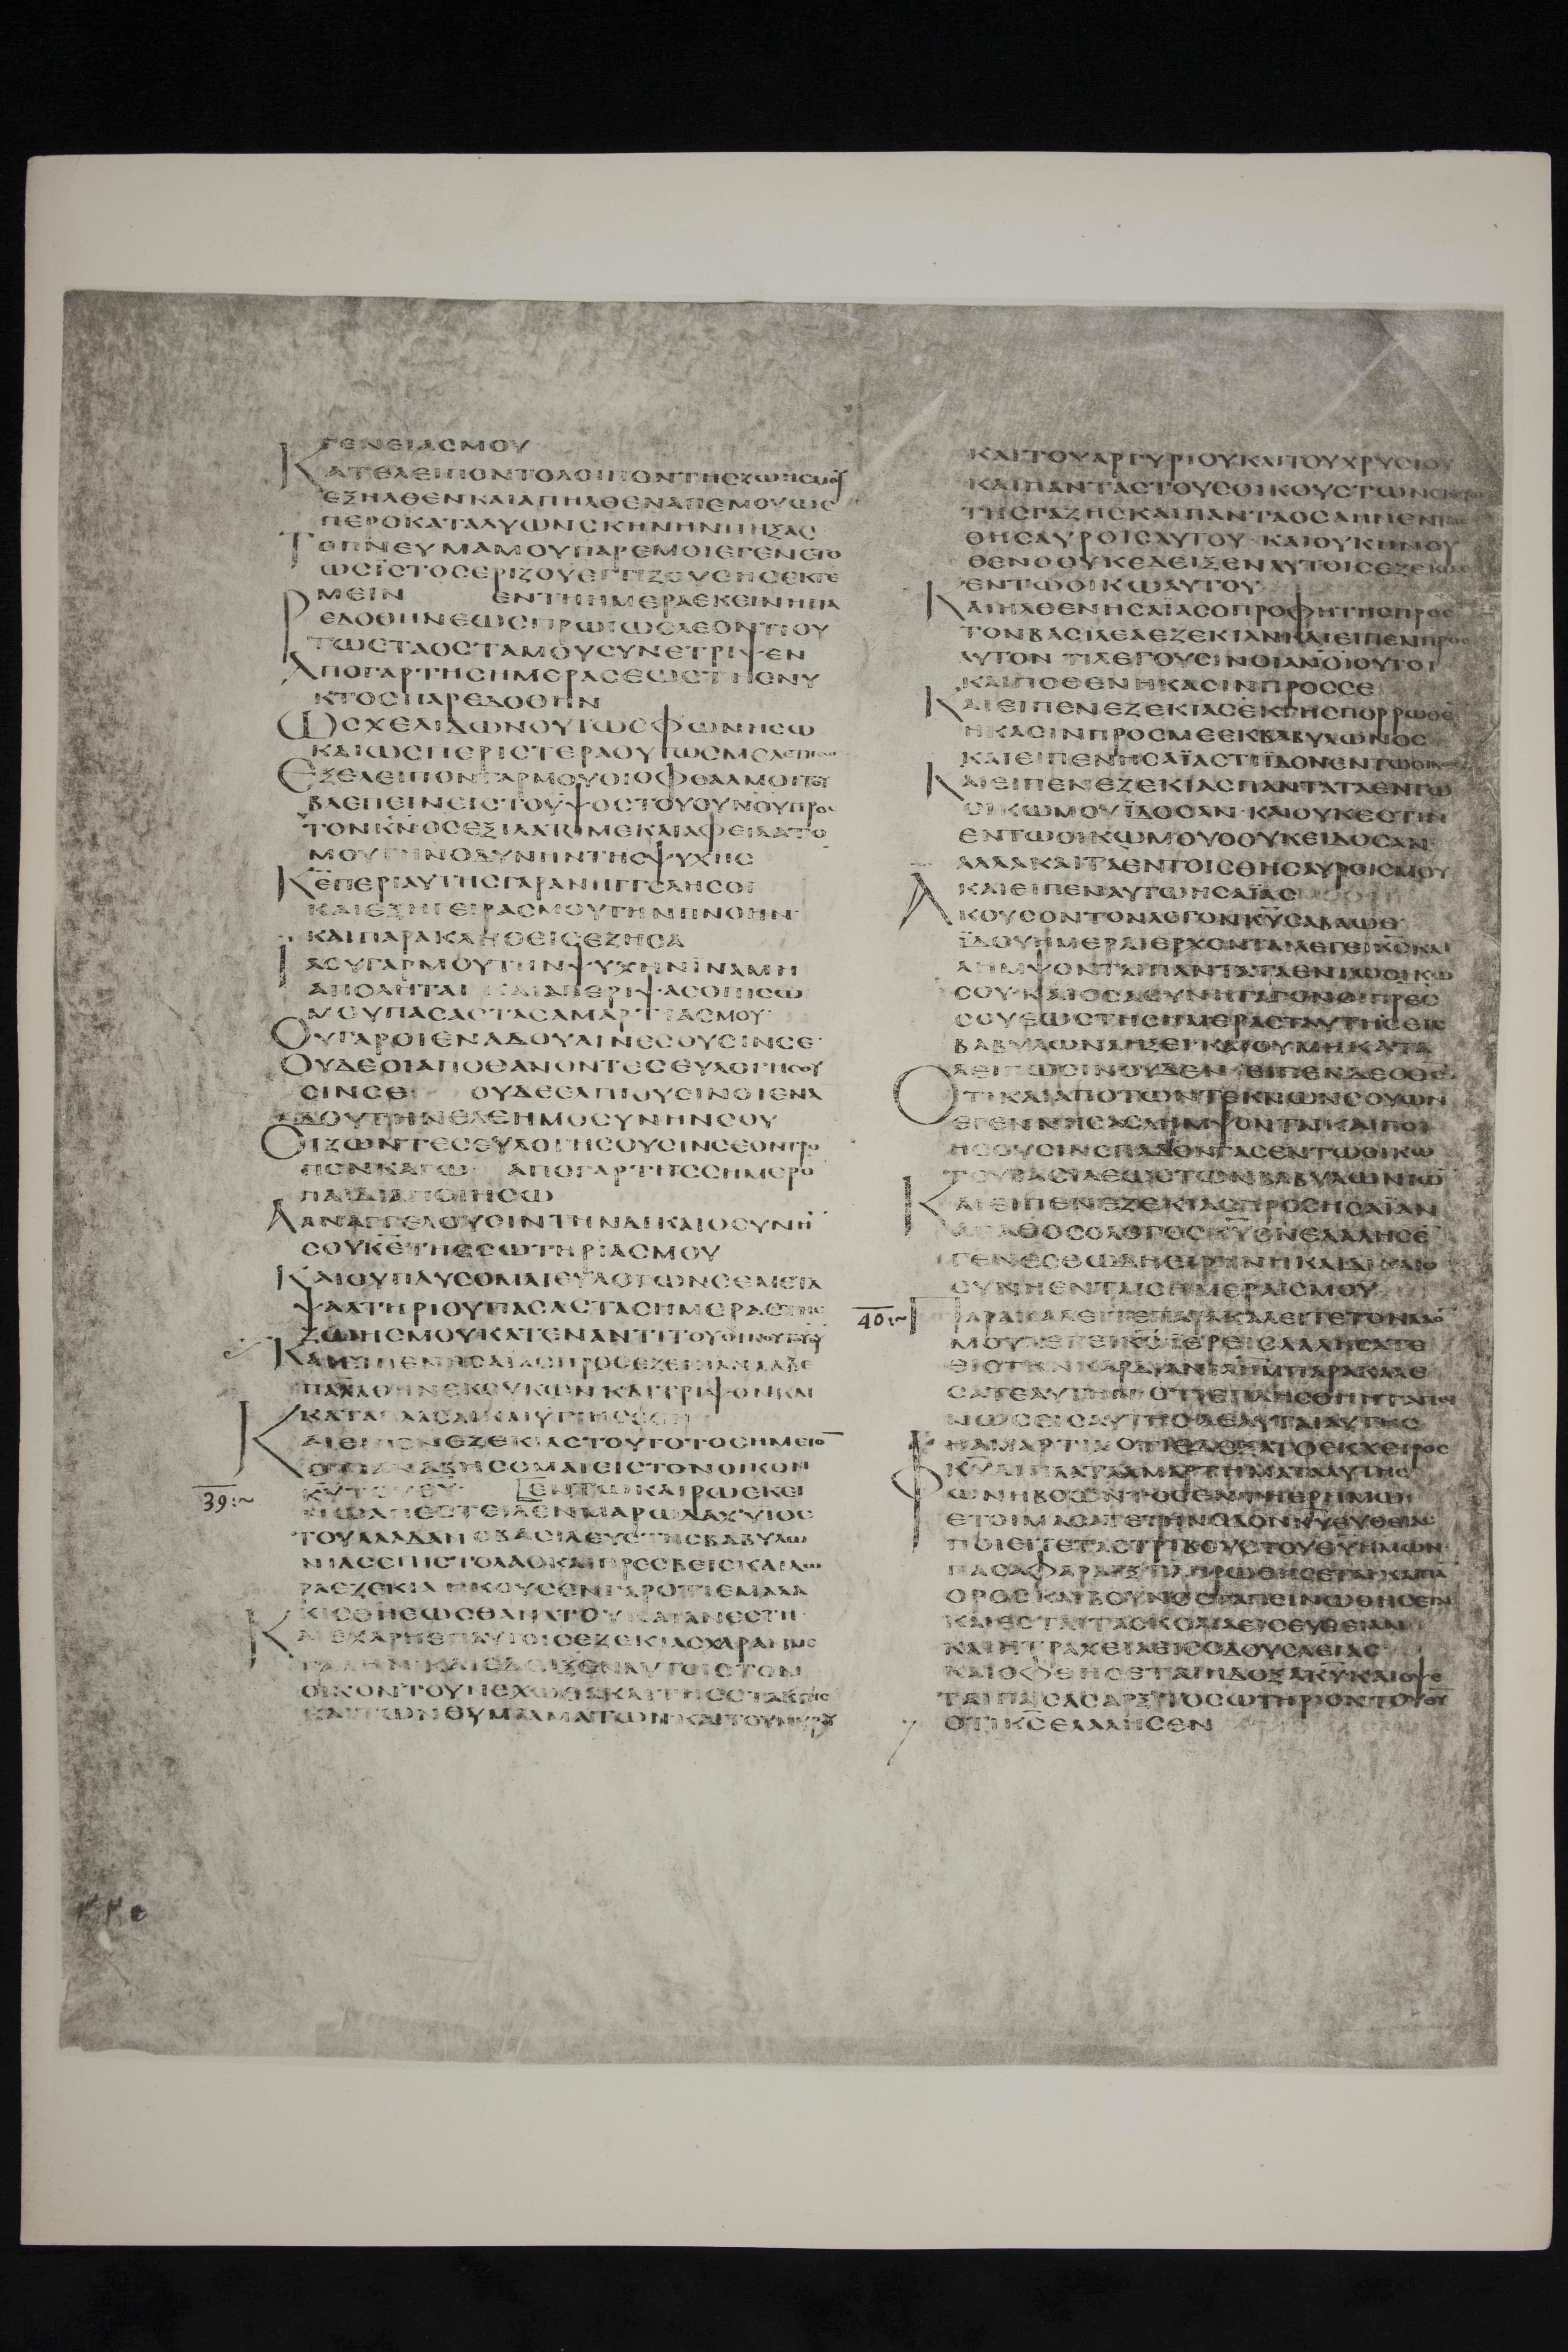 ΓΕΝΕΙΑСΜΟΥ
ΚΑΤΕΛΕΙΠΟΝΤΟΛΟΙΠΟΝΤΗСΖΩΗСΜΟΥ
ΕΞΗΛΘΕΝΚΑΙΑΠΗΛΘΕΝΑΠΕΜΟΥΩС
ΠΕΡΟΚΑΤΑΛΥΩΝСΚΗΝΗΝΠΗΞΑС
ΤΟΠΝΕΥΜΑΜΟΥΠΑΡΕΜΟΙΕΓΕΝΕΤΟ
ΩСΪСΤΟСΕΡΙΖΟΥΕΓΓΙΖΟΥСΗСΕΚΤΕ
ΜΕΙΝ ΕΝΤΗΗΜΕΡΑΕΚΕΙΝΗΠΑ
ΡΕΔΟΘΗΝΕΩСΠΡΩΪΩСΛΕΟΝΤΙΟΥ
ΤΩСΤΑΟСΤΑΜΟΥСΥΝΕΤΡΙΨΕΝ
ΑΠΟΓΑΡΤΗСΗΜΕΡΑСΕΩСΤΗСΝΥ
ΚΤΟСΠΑΡΕΔΟΘΗΝ
ΩСΧΕΛΙΔΩΝΟΥΤΩСΦΩΝΗСΩ
ΚΑΙΩСΠΕΡΙСΤΕΡΑΟΥΤΩСΜΕΛΕΤΗСΩ
ΕΞΕΛΕΙΠΟΝΓΑΡΜΟΥΟΙΟΦΘΑΛΜΟΙΤΟΥ
ΒΛΕΠΕΙΝΕΙСΤΟΥΨΟСΤΟΥΟΥΝΟΥΠΡΟС
ΤΟΝΚΝΟСΕΞΙΛΑΤΟΜΕΚΑΙΑΦΕΙΛΑΤΟ
ΜΟΥΤΗΝΟΔΥΝΗΝΤΗСΨΥΧΗС
ΚΕΠΕΡΙΑΥΤΗСΓΑΡΑΝΗΓΓΕΛΗСΟΙ
ΚΑΙΕΞΗΓΕΙΡΑСΜΟΥΤΗΝΠΝΟΗΝ
ΚΑΙΠΑΡΑΚΛΗΘΕΙСΕΖΗСΑ
ΛΟΥΓΑΡΜΟΥΤΗΝΨΥΧΗΝΪΝΑΜΗ
ΑΠΟΛΗΤΑΙ ΚΑΙΑΠΕΡΙΨΑСΟΠΙСΩ
ΜΟΥΠΑСΑСΤΑСΑΜΑΡΤΙΑСΜΟΥ
ΟΥΓΑΡΟΙΕΝΑΔΟΥΑΙΝΕСΟΥСΙΝСΕ
ΟΥΔΕΟΙΑΠΟΘΑΝΟΝΤΕСΕΥΛΟΓΗСΟΥ
СΙΝСΕ ΟΥΔΕΕΛΠΙΟΥСΙΝΟΙΕΝΑ
ΔΟΥΤΗΝΕΛΕΗΜΟСΥΝΗΝСΟΥ
ΟΙΖΩΝΤΕСΕΥΛΟΓΗСΟΥСΙΝСΕΟΝΤΡΟ
ΠΟΝΚΑΓΩ ΑΠΟΓΑΡΤΗССΗΜΕΡΟ
ΠΑΙΔΙΑΠΟΙΗСΩ
ΑΑΝΑΓΓΕΛΟΥСΙΝΤΗΝΔΙΚΑΙΟСΥΝΗ
СΟΥΚΕΤΗССΩΤΗΡΙΑСΜΟΥ
ΚΑΙΟΥΠΑΥСΟΜΑΙΕΥΛΟΓΩΝСΕΜΕΤΑ
ΨΑΛΤΗΡΙΟΥΠΑСΑСΤΑСΗΜΕΡΑСΤΗС
ΖΩΗСΜΟΥΚΑΤΕΝΑΝΤΙΤΟΥΟΙΚΟΥΤΟΥΘΥ
ΚΑΙΕΙΠΕΝΗСΑΙΑСΠΡΟСΕΖΕΚΙΑΝΛΑΒΕ
ΠΑΛΑΘΗΝΕΚСΥΚΩΝΚΑΙΤΡΙΨΟΝΚΑΙ
ΚΑΤΑΠΛΑСΑΙΚΑΙΥΓΙΗСΕСΗ
ΚΑΙΕΙΠΕΝΕΖΕΚΙΑСΤΟΥΤΟΤΟСΗΜΕΙΟ
ΟΤΙΑΝΑΒΗСΟΜΑΙΕΙСΤΟΝΟΙΚΟΝ
39:~ ΚΥΤΟΥΘΥ ΕΝΤΩΚΑΙΡΩΕΚΕΙ
ΝΩΑΠΕСΤΕΙΛΕΝΜΑΡΩΔΑΧΥΙΟС
ΤΟΥΛΑΑΔΑΝΟΒΑСΙΛΕΥСΤΗСΒΑΒΥΛΩ
ΝΙΑСΕΠΙСΤΟΛΑСΚΑΙΠΡΕСΒΕΙСΚΑΙΔΩ
ΡΑΕΖΕΚΙΑ ΗΚΟΥСΕΝΓΑΡΟΤΙΕΜΑΛΑ
ΚΙСΘΗΕΩСΘΑΝΑΤΟΥΚΑΙΑΝΕСΤΗ
ΚΑΙΕΧΑΡΗΕΠΑΥΤΟΙСΕΖΕΚΙΑСΧΑΡΑΝΜΕ
ΓΑΛΗΝΚΑΙΕΔΕΙΞΕΝΑΥΤΟΙСΤΟΝ
ΟΙΚΟΝΤΟΥΝΕΧΩΘΑΚΑΙΤΗССΤΑΚΤΗС
ΚΑΙΤΩΝΘΥΜΙΑΜΑΤΩΝΚΑΙΤΟΥΜΥΡΟΥ
ΚΑΙΤΟΥΑΡΓΥΡΙΟΥΚΑΙΤΟΥΧΡΥСΙΟΥ
ΚΑΙΠΑΝΤΑСΤΟΥСΟΙΚΟΥСΤΩΝ
ΤΗСΓΑΖΗСΚΑΙΠΑΝΤΑΟСΑΗΝΕΝ
ΘΗСΑΥΡΟΙСΑΥΤΟΥ ΚΑΙΟΥΚΗΝΟΥ
ΘΕΝΟΟΥΚΕΔΕΙΞΕΝΑΥΤΟΙСΕΖΕΚΙΑС
ΕΝΤΩΟΙΚΩΑΥΤΟΥ
ΚΑΙΗΛΘΕΝΗСΑΪΑСΟΠΡΟΦΗΤΗСΠΡΟС
ΤΟΝΒΑСΙΛΕΑΕΖΕΚΙΑΝΚΑΙΕΙΠΕΝΠΡΟС
ΑΥΤΟΝ ΤΙΛΕΓΟΥСΙΝΟΙΑΝΟΙΟΥΤΟΙ
ΚΑΙΠΟΘΕΝΗΚΑСΙΝΠΡΟССΕ
ΚΑΙΕΙΠΕΝΕΖΕΚΙΑСΕΚΓΗСΠΟΡΡΩΘΕ
ΗΚΑСΙΝΠΡΟСΜΕΕΚΒΑΒΥΛΩΝΟС
ΚΑΙΕΙΠΕΝΗСΑΪΑСΤΙΪΔΟΝΕΝΤΩΟΙΚΩ
ΚΑΙΕΙΠΕΝΕΖΕΚΙΑСΠΑΝΤΑΤΑΕΝΤΩ
ΟΙΚΩΜΟΥΪΔΟСΑΝ ΚΑΙΟΥΚΕСΤΙΝ
ΕΝΤΩΟΙΚΩΜΟΥΟΟΥΚΕΙΔΟСΑΝ
ΑΛΛΑΚΑΙΤΑΕΝΤΟΙСΘΗСΑΥΡΟΙСΜΟΥ
ΚΑΙΕΙΠΕΝΑΥΤΩΗСΑΪΑС
ΑΚΟΥСΟΝΤΟΝΛΟΓΟΝΚΥСΑΒΑΩΘ
ΪΔΟΥΗΜΕΡΑΙΕΡΧΟΝΤΑΙΛΕΓΕΙΚСΚΑΙ
ΛΗΜΨΟΝΤΑΙΠΑΝΤΑΤΑΕΝΤΩΟΙΚΩ
СΟΥΚΑΙΟСΑСΥΝΗΓΑΓΟΝΟΙΠΡΕС
СΟΥΕΩСΤΗСΗΜΕΡΑСΤΑΥΤΗСΕΙС
ΒΑΒΥΛΩΝΑΗΞΕΙΚΑΙΟΥΜΗΚΑΤΑ
ΛΕΙΠΩСΙΝΟΥΔΕΝ ΕΙΠΕΝΔΕΟΘС
ΟΤΙΚΑΙΑΠΟΤΩΝΤΕΚΝΩΝСΟΥΩΝ
ΕΓΕΝΝΗСΑСΛΗΜΨΟΝΤΑΙΚΑΙΠΟΙ
ΗСΟΥСΙΝСΠΑΔΟΝΤΑСΕΝΤΩΟΙΚΩ
ΤΟΥΒΑСΙΛΕΩСΤΩΝΒΑΒΥΛΩΝΙΩ
ΚΑΙΕΙΠΕΝΕΖΕΚΙΑСΠΡΟСΗСΑΪΑΝ
ΑΓΑΘΟСΟΛΟΓΟСΚΥΟΝΕΛΑΛΗСΕ
ΓΕΝΕСΘΩΔΗΕΙΡΗΝΗΚΑΙΔΙΚΑΙΟ
СΥΝΗΕΝΤΑΙСΗΜΕΡΑΙСΜΟΥ
40:~ ΠΑΡΑΚΑΛΕΙΤΕΠΑΡΑΚΑΛΕΙΤΕΤΟΝΛΑΟ
ΜΟΥΛΕΓΕΙΚСΪΕΡΕΙСΛΑΛΗСΑΤΕ
ΕΙСΤΗΝΚΑΡΔΙΑΝΪΛΗΜΠΑΡΑΚΑΛΕ
СΑΤΕΑΥΤΗΝΟΤΙΕΠΛΗСΘΗΗΤΑΠΙ
ΝΩСΕΙСΑΥΤΗСΛΕΛΥΤΑΙΑΥΤΗС
ΗΑΜΑΡΤΙΑΟΤΙΕΔΕΞΑΤΟΕΚΧΕΙΡΟС
ΚΥΔΙΠΛΑΤΑΑΜΑΡΤΗΜΑΤΑΑΥΤΗС
ΦΩΝΗΒΟΩΝΤΟСΕΝΤΗΕΡΗΜΩ
ΕΤΟΙΜΑСΑΤΕΤΗΝΟΔΟΝΚΥΕΥΘΕΙΑС
ΠΟΙΕΙΤΕΤΑСΤΡΙΒΟΥСΤΟΥΘΥΗΜΩΝ
ΠΑСΑΦΑΡΑΓΞΠΛΗΡΩΘΗСΕΤΑΙΚΑΙΠΑ
ΟΡΟСΚΑΙΒΟΥΝΟСΤΑΠΕΙΝΩΘΗСΕΝ
ΚΑΙΕСΤΑΙΤΑСΚΟΛΙΑΕΙСΕΥΘΕΙΑΝ
ΚΑΙΗΤΡΑΧΕΙΑΕΙСΟΔΟΥСΛΕΙΑС
ΚΑΙΟΦΘΗСΕΤΑΙΗΔΟΞΑΚΥΚΑΙΟΨΕ
ΤΑΙΠΑСΑСΑΡΞΤΟСΩΤΗΡΙΟΝΤΟΥΘΥ
ΟΤΙΚСΕΛΑΛΗСΕΝ